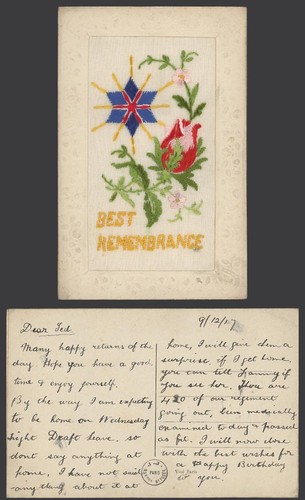 BEST
REMEMBRANCE
Dear Ted.
Many happy returns of the
day. Hope you have a good
time & enjoy yourself.
By the way I am expecting
to be home on Wednesday
night Draft leave. so
dont say anything at
home. I have not said
any thing about it at
9/12/17
home, I will give them a
surprise if I get home
you can tell Fanny if
you see her. There are
420 of our regiment
going out, been medically
examined to day & passed
as fit. I will now close
with the best wishes for
a Happy Birthday
to you
PARIS